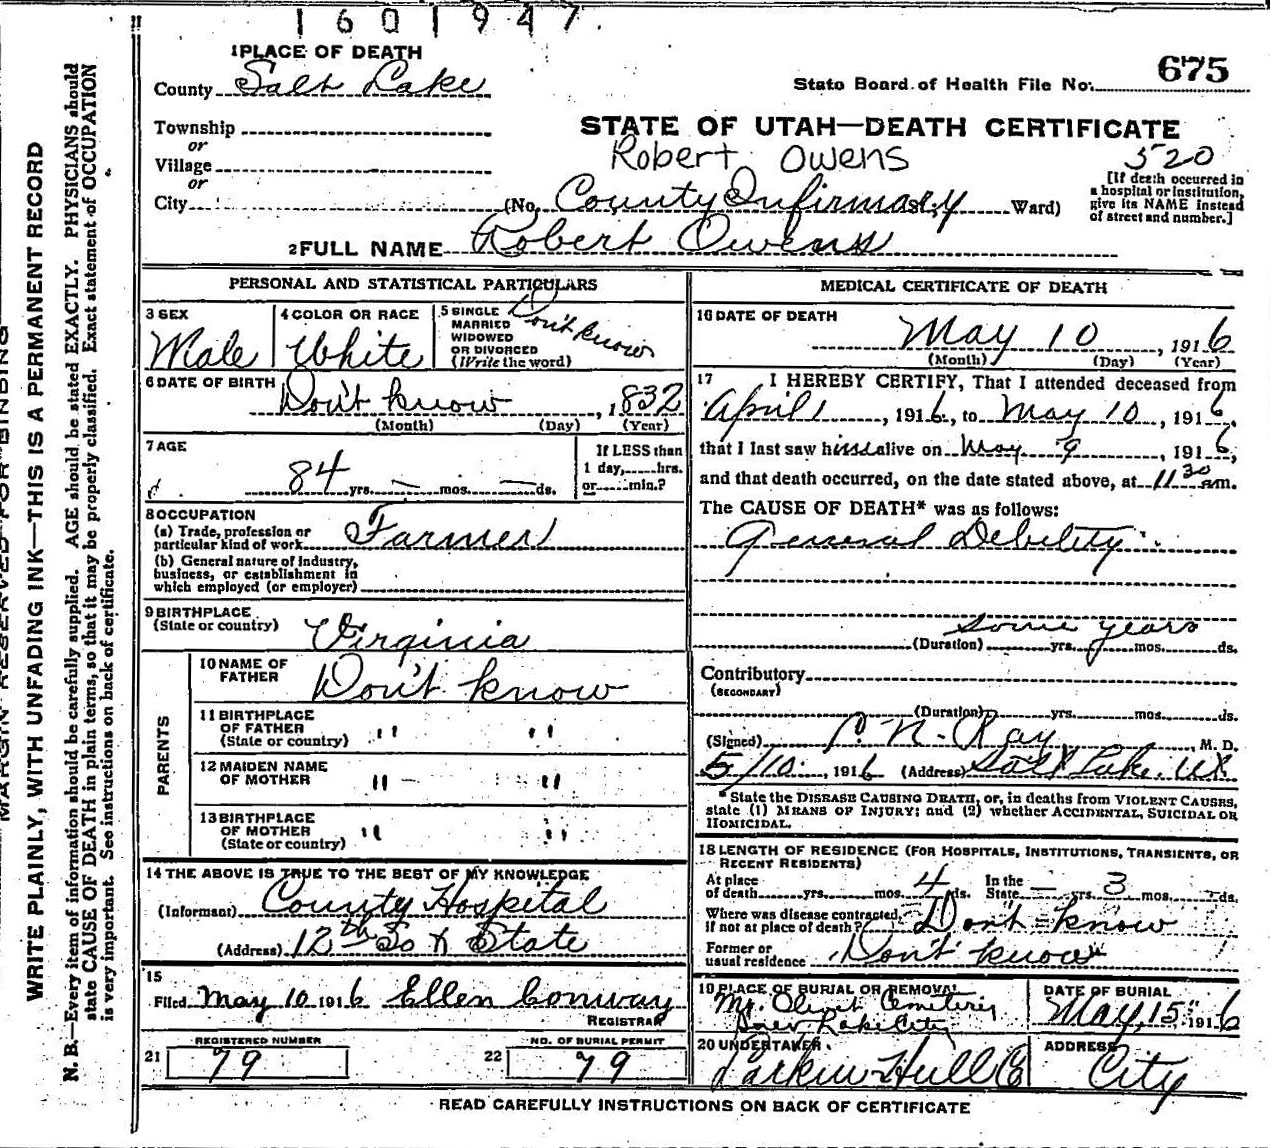 1601947
1 PLACE OF DEATH
County Salt Lake
State Board of Health File No. 675
Township
or
Village
or
City
STATE OF UTAH—DEATH CERTIFICATE
Robert Owens
520
(No. County Infirmary St.; Ward)
[If death occurred in
a hospital or institution,
give its NAME instead
of street and number.]
2 FULL NAME Robert Owens
PERSONAL AND STATISTICAL PARTICULARS
3 SEX
Male
4 COLOR OR RACE
White
5 SINGLE
MARRIED
WIDOWED
OR DIVORCED
(Write the word)
Don't know
6 DATE OF BIRTH
Don't know, 1832
(Month) (Day) (Year)
7 AGE
84 yrs. — mos. — ds.
If LESS than
1 day, hrs.
or min.?
8 OCCUPATION
(a) Trade, profession or
particular kind of work Farmer
(b) General nature of industry,
business, or establishment in
which employed (or employer)
9 BIRTHPLACE
(State or country) Virginia
PARENTS
10 NAME OF
FATHER Don't know
11 BIRTHPLACE
OF FATHER
(State or country) " "
12 MAIDEN NAME
OF MOTHER " "
13 BIRTHPLACE
OF MOTHER
(State or country) " "
14 THE ABOVE IS TRUE TO THE BEST OF MY KNOWLEDGE
(Informant) County Hospital
(Address) 12th So & State
15
Filed May 10 1916 Ellen Conway
REGISTRAR
21 REGISTERED NUMBER
79
22 NO. OF BURIAL PERMIT
79
MEDICAL CERTIFICATE OF DEATH
16 DATE OF DEATH
May 10, 1916
(Month) (Day) (Year)
17 I HEREBY CERTIFY, That I attended deceased from
April 1, 1916, to May 10, 1916,
that I last saw him alive on May 9, 1916,
and that death occurred, on the date stated above, at 11 30 am.
The CAUSE OF DEATH* was as follows:
General Debility
some years
(Duration) yrs. mos. ds.
Contributory
(SECONDARY)
(Duration) yrs. mos. ds.
(Signed) P. N. Ray, M. D.
5/10, 1916 (Address) Salt Lake, Ut
*State the DISEASE CAUSING DEATH, or, in deaths from VIOLENT CAUSES,
state (1) MEANS OF INJURY; and (2) whether ACCIDENTAL, SUICIDAL OR
HOMICIDAL.
18 LENGTH OF RESIDENCE (FOR HOSPITALS, INSTITUTIONS, TRANSIENTS, OR
RECENT RESIDENTS)
At place
of death yrs. mos. 4 ds.
In the
State — yrs. 3 mos. — ds.
Where was disease contracted,
if not at place of death? Don't know
Former or
usual residence Don't know
19 PLACE OF BURIAL OR REMOVAL
Mt. Olivet Cemetery
Lake City
DATE OF BURIAL
May 15 1916
20 UNDERTAKER
Larkin Hull
ADDRESS
City
READ CAREFULLY INSTRUCTIONS ON BACK OF CERTIFICATE
MARGIN RESERVED FOR BINDING
WRITE PLAINLY, WITH UNFADING INK—THIS IS A PERMANENT RECORD
N. B.—Every item of information should be carefully supplied. AGE should be stated EXACTLY. PHYSICIANS should
state CAUSE OF DEATH in plain terms, so that it may be properly classified. Exact statement of OCCUPATION
is very important. See instructions on back of certificate.